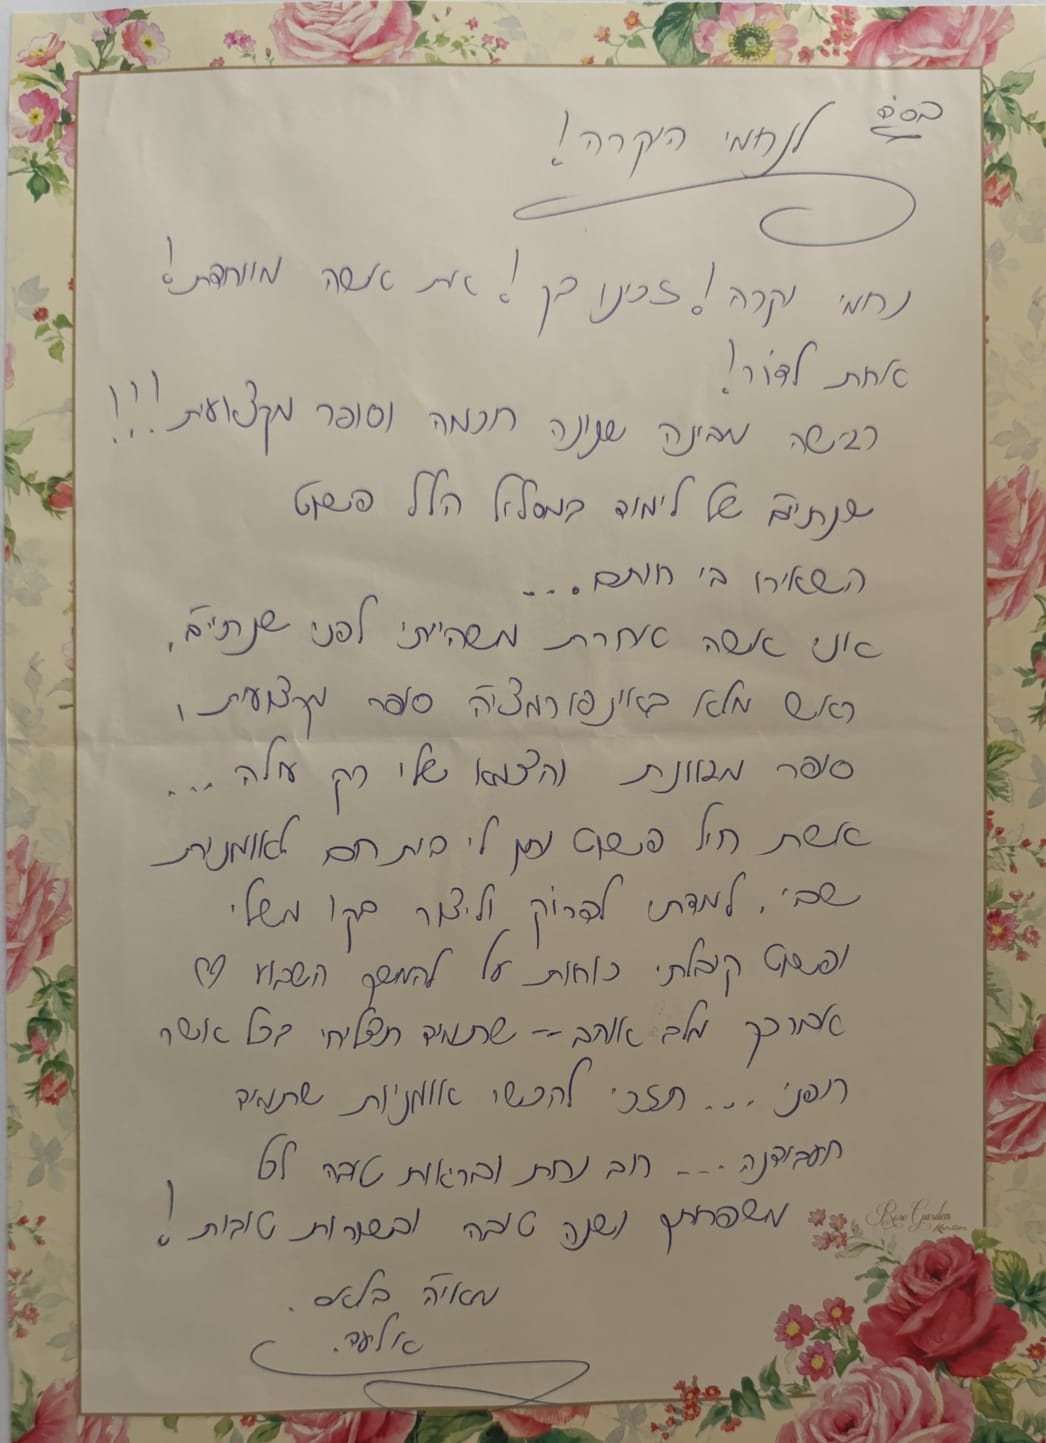 בס"ד
לנחמי היקרה!
נחמי יקרה! זכינו בך! את אשה מיוחדת!
אחת לדור!
רגישה מבינה שנונה חכמה וסופר מקצועית!!!
שנתיים של לימוד במסלול הלל פשוט
השאירו בי חותם...
אני אשה אחרת משהייתי לפני שנתיים,
ראש מלא באינפורמציה סופר מקצועית,
סופר מגוונת והצמא שלי רק עלה...
אשת חיל פשוט נתן לי בית חם לאומנית
שבי, למדתי לפרוק וליצור בקו משלי
ופשוט קיבלתי כוחות על להמשך השבוע ♡
אברכך מלב אוהב -- שתמיד תצליחי בכל אשר
תפני... תזכי להכשיר אומניות שתמיד
תעבודנה... רוב נחת ובריאות טובה לכל
משפחתך ושנה טובה ובשורות טובות!
מאיה בלאס.
אלעד.
Rose Garden